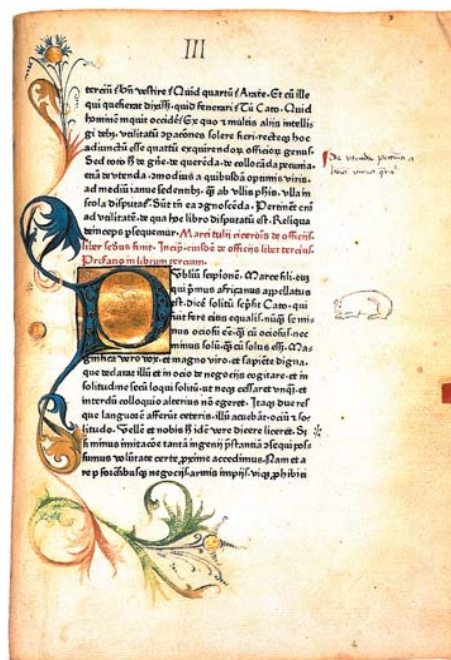 III
terciū? bn̄ vestire? Quid quartū? Arare. Et cū ille
qui quesierat dixiss; quid fenerari? Tū Cato. Quid
hominē inquit occidē? Ex quo & multis aliis intelligi
debz. utilitatū ꝯpacōnes solere fieri: recteqz hoc
adiunctū esse quartū exquirendoꝝ officioꝝ genus.
Sed toto h̄ de gñe. de querēda. de collocāda pecunia.
etiā de vtenda. cmodius a quibusdā optimis viris.
ad mediū ianue sedentibz. qz ab vllis phis. vlla in
scola disputat̄. Sūt tn̄ ea ꝯgnoscēda. Pertinēt em̄
ad utilitatē. de qua hoc libro disputatū est. Reliqua
deinceps ꝑsequemur. Marci tulij ciceronis de officijs.
liber secūdus finit. Incip̄ eiusdē de officijs liber tercius.
Prefatio in librum tercium.
PVbliū scipionē. Marce fili. euz
qui pͥmus africanus appellatus
est. dicē solitū scpͥsit Cato. qui
fuit fere eius equalis. nūqz se minus
ociosū eē. qz cū ociosus. nec
minus solū. qz cū solus ess;. Magnifica
vero vox. et magno viro. et sapiēte digna.
que declarat illū et in ocio de negocijs cogitare. et in
solitudine secū loqui solitū. ut neqz cessaret vnqz. et
interdū colloquio alterius nō egeret. Itaqz due res
que languorē afferūt ceteris. illū acuebāt. ociū & solitudo.
Vellē et nobis h̄ idē vere dicere liceret. Si
minus imitacōe tantā ingenij pͣstantiā ꝯsequi possumus
volūtate certe ꝓxime accedimus. Nam et a
re p forēsibusqz negocijs. armis impijs. viqz ꝓhibiti